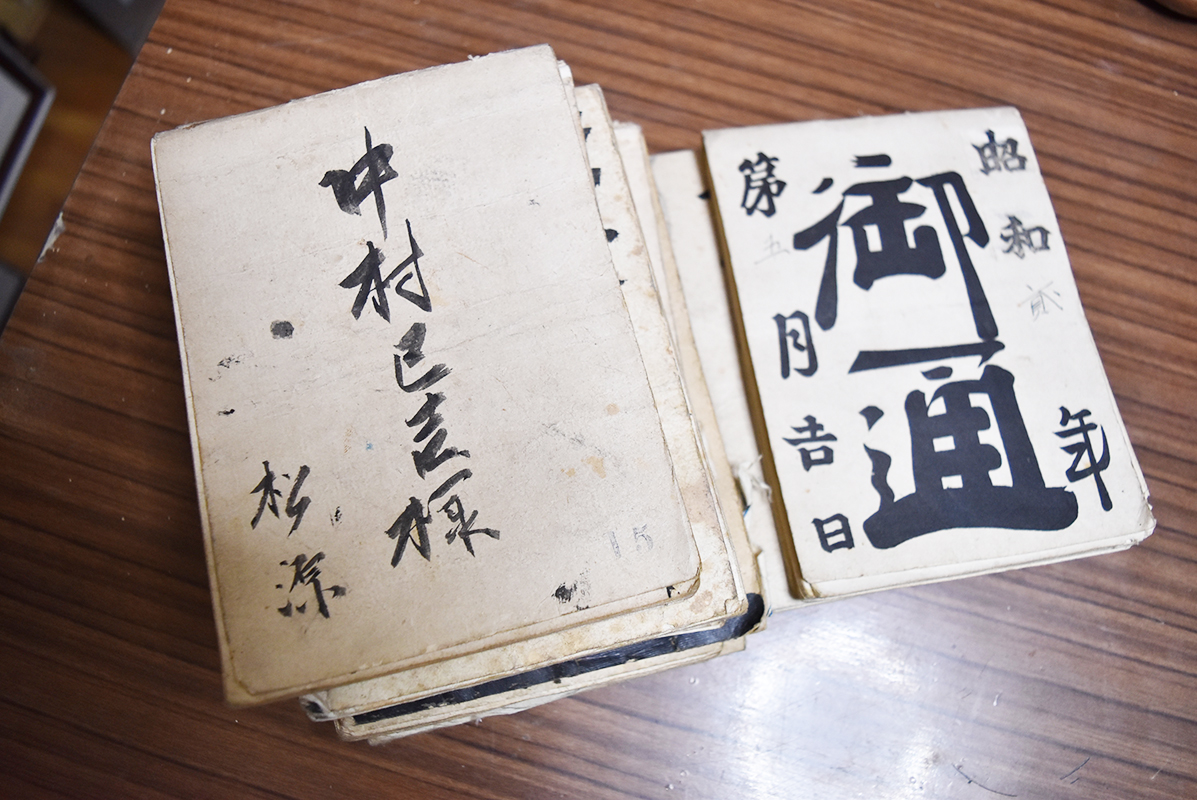 中村巳吉様
松源
15
昭和弐年
御通
第五月吉日